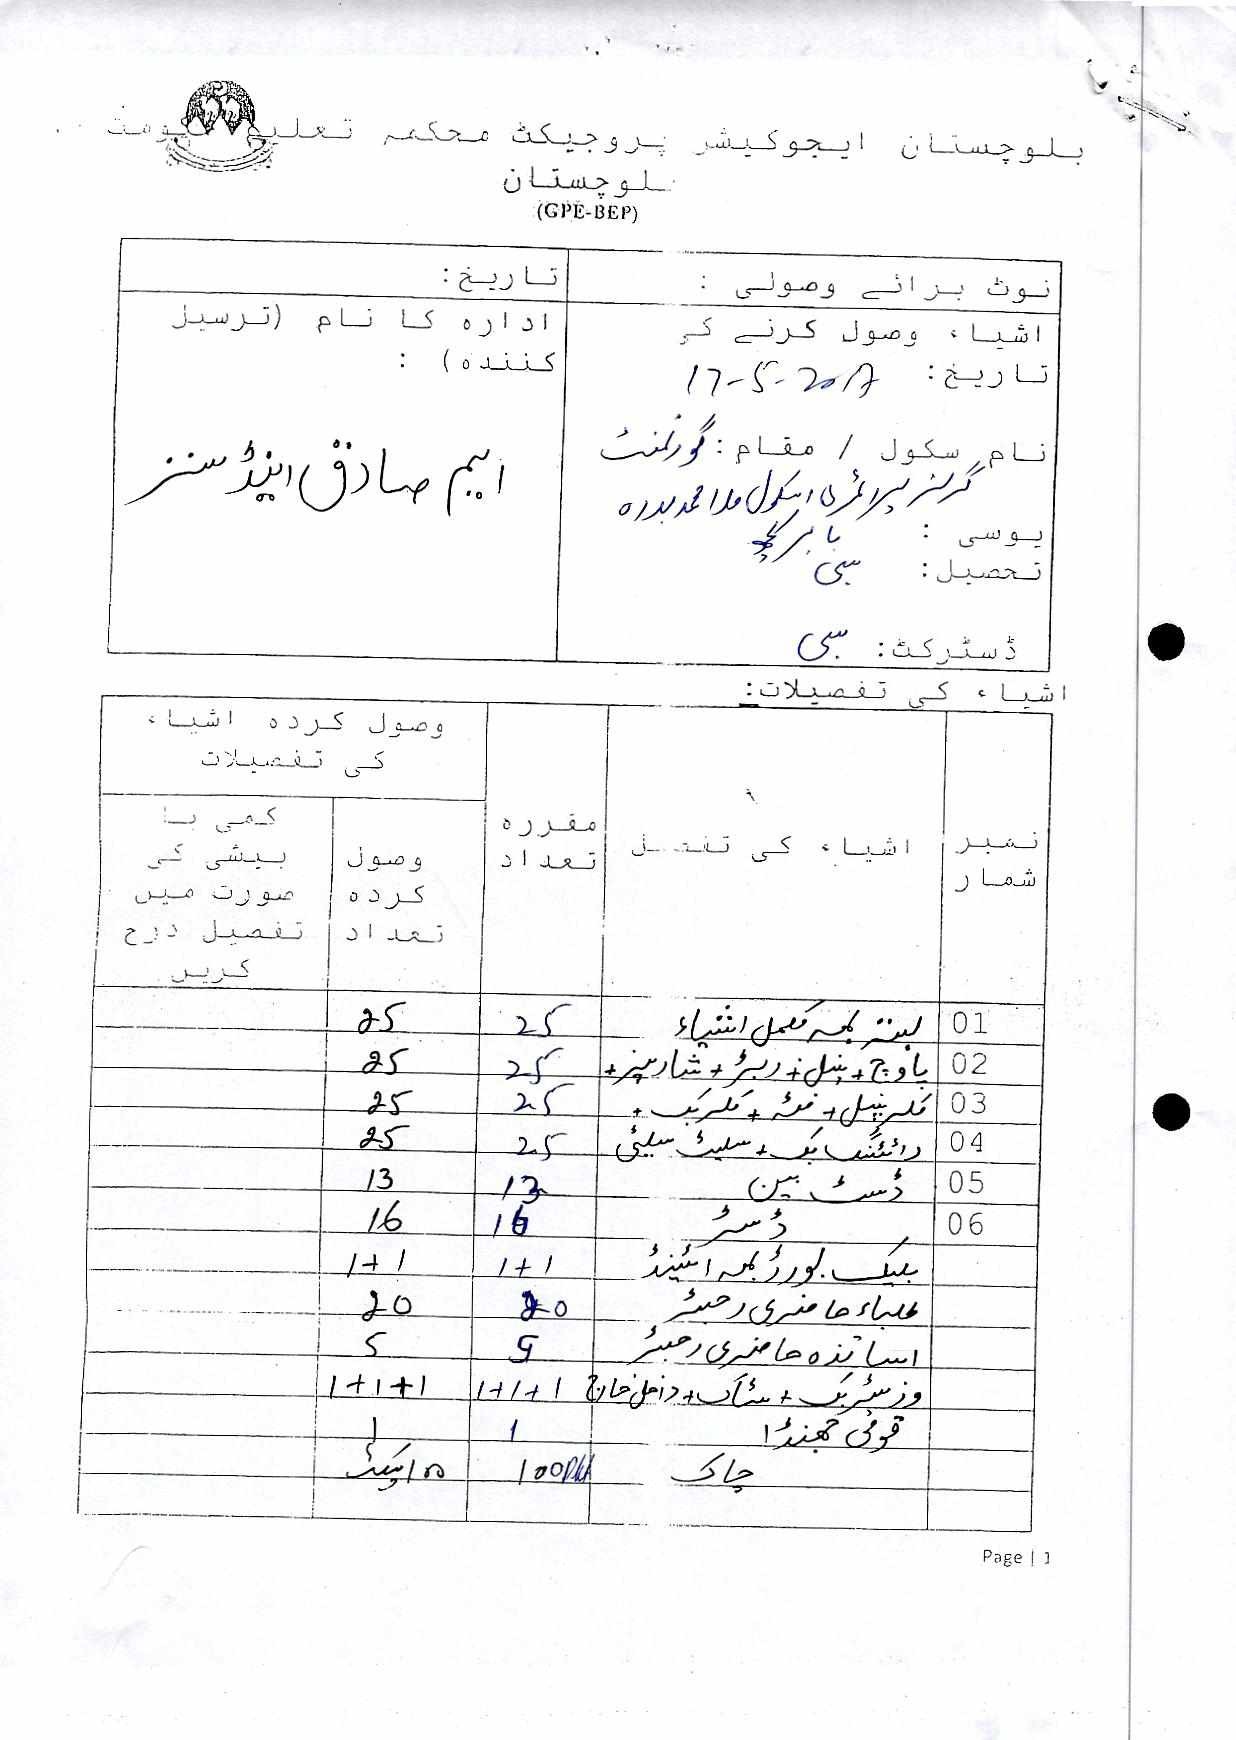 بلوچستان ایجوکیشر پروجیکٹ محکمہ تعلیم
بلوچستان
(GPE-BEP)
نوٹ برائے وصولی :
تاریخ:
اشیاء وصول کرنے کی
تاریخ: 17-5-2017
نام سکول / مقام: گورنمنٹ
گرلز پرائمری اسکول ملا محمد
یوسی :
تحصیل: سبی
ڈسٹرکٹ: سبی
ادارہ کا نام (ترسیل
کنندہ) :
ایم صادق اینڈ سنز
اشیاء کی تفصیلات:
نمبر شمار
اشیاء کی تفصیل
مقررہ تعداد
وصول کردہ اشیاء کی تفصیلات
وصول کردہ تعداد
کمی یا بیشی کی صورت میں تفصیل درج کریں
01 بستہ بمعہ مکمل اشیاء 25 25
02 پاوچ + پنسل + ربڑ + شارپنر + 25 25
03 کلر پنسل + فٹہ + کلر بک + 25 25
04 رائٹنگ بک + سلیٹ سلیٹی 25 25
05 ڈسٹ بین 13 13
06 ڈسٹر 16 16
بلیک بورڈ بمعہ اسٹینڈ 1+1 1+1
طلباء حاضری رجسٹر 20 20
اساتذہ حاضری رجسٹر 5 5
وزیٹر بک + سٹاک + داخل خارج 1+1+1 1+1+1
قومی جھنڈا 1 1
چاک 100 پیکٹ
Page | 1